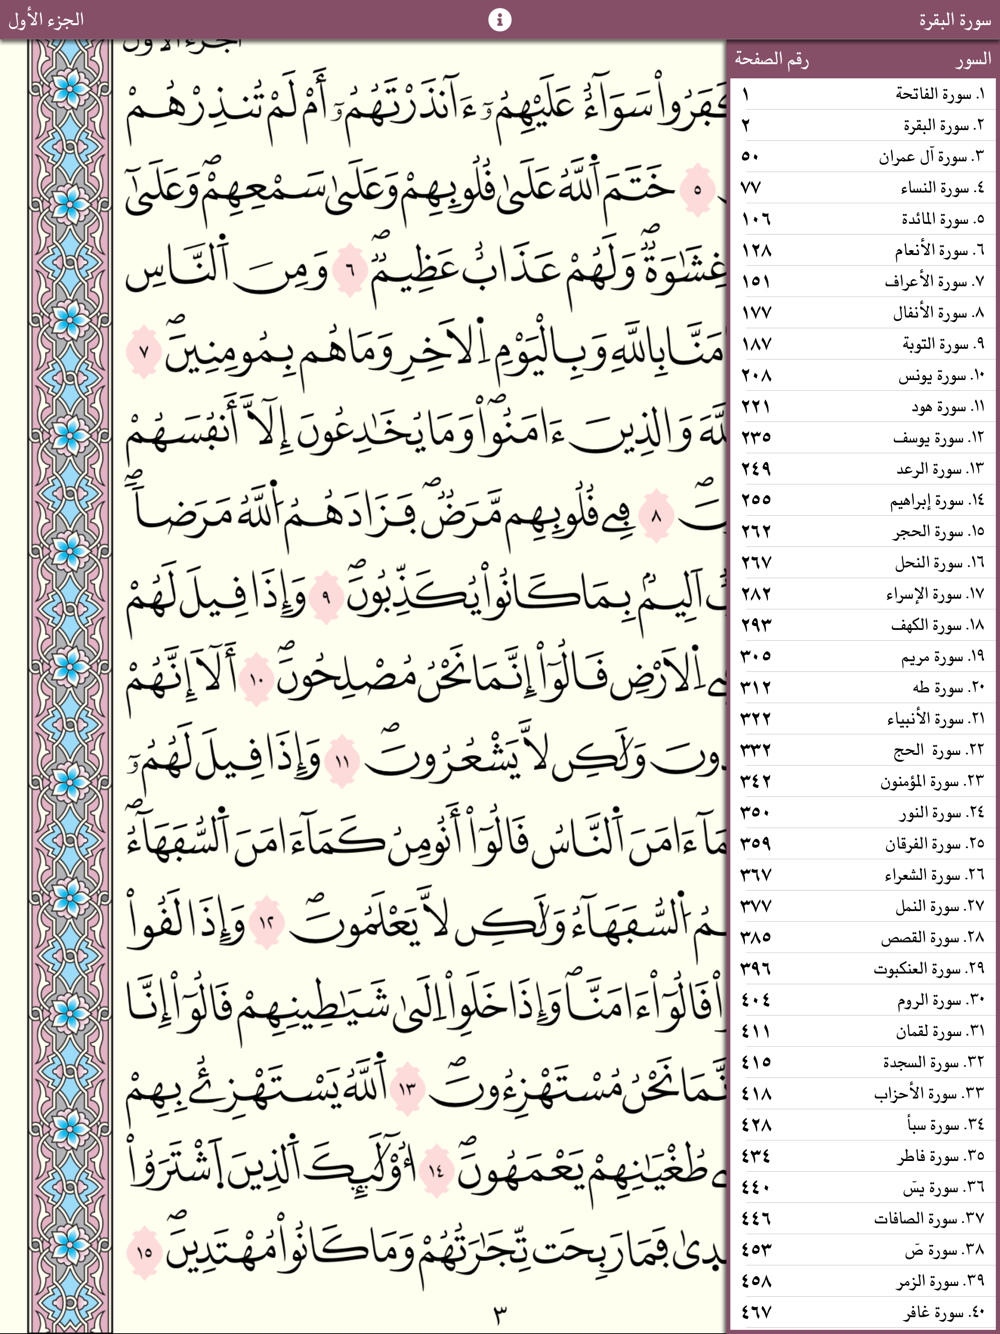 سورة البقرة
الجزء الأول
السور رقم الصفحة
١. سورة الفاتحة ١
٢. سورة البقرة ٢
٣. سورة آل عمران ٥٠
٤. سورة النساء ٧٧
٥. سورة المائدة ١٠٦
٦. سورة الأنعام ١٢٨
٧. سورة الأعراف ١٥١
٨. سورة الأنفال ١٧٧
٩. سورة التوبة ١٨٧
١٠. سورة يونس ٢٠٨
١١. سورة هود ٢٢١
١٢. سورة يوسف ٢٣٥
١٣. سورة الرعد ٢٤٩
١٤. سورة إبراهيم ٢٥٥
١٥. سورة الحجر ٢٦٢
١٦. سورة النحل ٢٦٧
١٧. سورة الإسراء ٢٨٢
١٨. سورة الكهف ٢٩٣
١٩. سورة مريم ٣٠٥
٢٠. سورة طه ٣١٢
٢١. سورة الأنبياء ٣٢٢
٢٢. سورة الحج ٣٣٢
٢٣. سورة المؤمنون ٣٤٢
٢٤. سورة النور ٣٥٠
٢٥. سورة الفرقان ٣٥٩
٢٦. سورة الشعراء ٣٦٧
٢٧. سورة النمل ٣٧٧
٢٨. سورة القصص ٣٨٥
٢٩. سورة العنكبوت ٣٩٦
٣٠. سورة الروم ٤٠٤
٣١. سورة لقمان ٤١١
٣٢. سورة السجدة ٤١٥
٣٣. سورة الأحزاب ٤١٨
٣٤. سورة سبأ ٤٢٨
٣٥. سورة فاطر ٤٣٤
٣٦. سورة يسٓ ٤٤٠
٣٧. سورة الصافات ٤٤٦
٣٨. سورة صٓ ٤٥٣
٣٩. سورة الزمر ٤٥٨
٤٠. سورة غافر ٤٦٧
الجزء الأول
كَفَرُواْ سَوَآءٌ عَلَيْهِمُۥٓ ءَآنذَرْتَهُمُۥٓ أَمْ لَمْ تُنذِرْهُمْ
٥ خَتَمَ اَ۬للَّهُ عَلَىٰ قُلُوبِهِمْ وَعَلَىٰ سَمْعِهِمْۖ وَعَلَىٰٓ
غِشَٰوَةٞۖ وَلَهُمْ عَذَابٌ عَظِيمٞۖ ٦ وَمِنَ اَ۬لنَّاسِ
ءَامَنَّا بِاللَّهِ وَبِالْيَوْمِ اِ۬لَاخِرِ وَمَا هُم بِمُومِنِينَۖ ٧
اَ۬للَّهَ وَالذِينَ ءَامَنُواْۖ وَمَا يُخَٰدِعُونَ إِلَّآ أَنفُسَهُمْ
٨ فِے قُلُوبِهِم مَّرَضٞۖ فَزَادَهُمُ اُ۬للَّهُ مَرَضاٗۖ
اَلِيمُۢ بِمَا كَانُواْ يُكَذِّبُونَۖ ٩ وَإِذَا قِيلَ لَهُمْ
فِے اِ۬لَارْضِ قَالُوٓاْ إِنَّمَا نَحْنُ مُصْلِحُونَۖ ١٠ أَلَآ إِنَّهُمْ
وَلَٰكِن لَّا يَشْعُرُونَۖ ١١ وَإِذَا قِيلَ لَهُمُۥٓ
كَمَآ ءَامَنَ اَ۬لنَّاسُ قَالُوٓاْ أَنُومِنُ كَمَآ ءَامَنَ اَ۬لسُّفَهَآءُۖ
هُمُ اُ۬لسُّفَهَآءُ وَلَٰكِن لَّا يَعْلَمُونَۖ ١٢ وَإِذَا لَقُواْ
قَالُوٓاْ ءَامَنَّاۖ وَإِذَا خَلَوِاْ اِلَىٰ شَيَٰطِينِهِمْ قَالُوٓاْ إِنَّا
إِنَّمَا نَحْنُ مُسْتَهْزِءُونَۖ ١٣ اَ۬للَّهُ يَسْتَهْزِئُ بِهِمْ
فِے طُغْيَٰنِهِمْ يَعْمَهُونَۖ ١٤ أُوْلَٰٓئِكَ اَ۬لذِينَ اَ۪شْتَرَوُاْ
بِالْهُدَىٰ فَمَا رَبِحَت تِّجَٰرَتُهُمْ وَمَا كَانُواْ مُهْتَدِينَۖ ١٥
٣